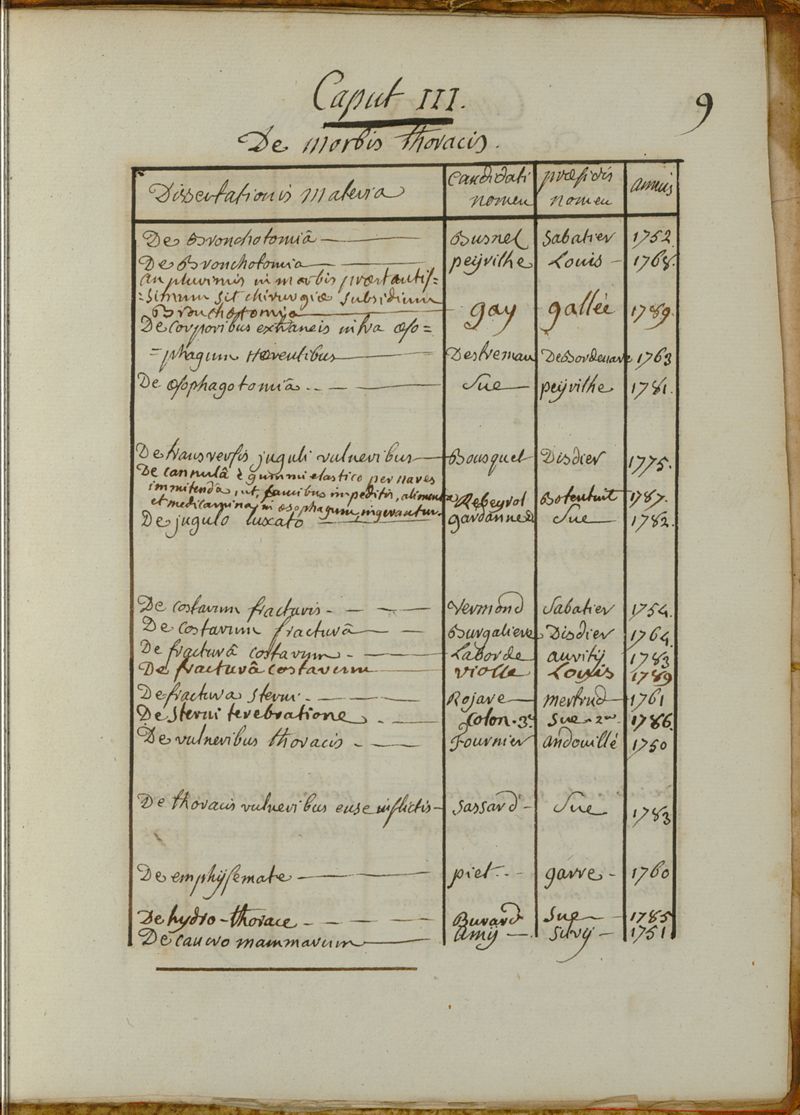 Caput III.
9
De Morbis thoracis.
Dissertationis materia | candidati nomen | præsidis nomen | annus
De Bronchotomiâ | Busnel | Sabatier | 1752.
De Bronchotomia | peyrilhe | Louis | 1768.
an pluvimis in morbis præstantis=
=simum sit chirurgiæ subsidium
Bronchotomia | gay | gallée | 1789.
De corporibus extraneis intra œso=
=phagum hærentibus | Destremau | Debordenave | 1763
De œsophagotomiâ | Sue | peyrilhe | 1781.
De transversis juguli vulneribus | Bousquet | Disdier | 1775.
De cannulâ è gummi elastico per nares
immittendâ, ut, faucibus impeditis, alimenta
et medicamina in œsophagum ingerantur. | Rebeyrol | Botentuit | 1787.
De jugulo luxato | gardanne | Sue | 1782.
De costarum fracturis | Vermond | Sabatier | 1754.
De costarum fracturâ | Burgaliere | Disdier | 1764.
De fracturâ costarum | Laborde | auvity | 1783
De fracturâ costarum | violle | Louis | 1789
De fractura sterni | Rojare | mertrud | 1761
De sterni terebratione | Colon. 3us | Sue 2us. | 1786.
De vulneribus thoracis | fournier | andouillé | 1750
De thoracis vulneribus ense inflictis | Sassard | Sue | 1783
De emphysemate | piet | garre | 1760
De hydro-thorace | Buvard | Sue | 1785
De cancro mammarum | amy | Suvy | 1751